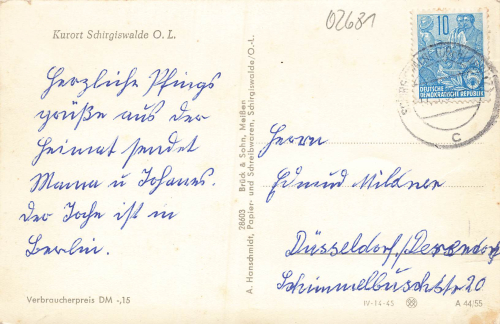 Kurort Schirgiswalde O. L.
Herzliche Pfings
grüße aus der
Heimat sendet
Mama u Johanes.
Der Joche ist in
Berlin.
Verbraucherpreis DM -,15
28603 Brück & Sohn, Meißen
A. Hanschmidt, Papier- und Schreibwaren, Schirgiswalde/O.-L.
02681
10
DEUTSCHE
DEMOKRATISCHE REPUBLIK
c
Herrn
Edmund Mildner
Düsseldorf/Derendorf
Schimmelbuschstr 20
IV-14-45
A 44/55